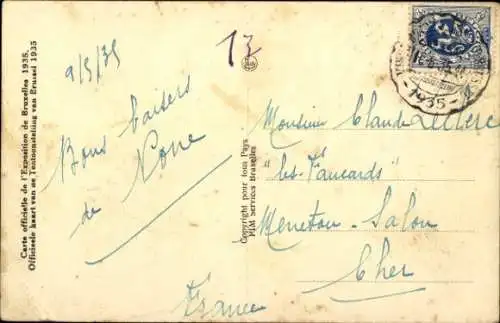 Carte officielle de l'Exposition de Bruxelles 1935.
Officieele kaart van de Tentoonstelling van Brussel 1935
9/5/35
Bons baisers
de
Copyright pour tous Pays
RIM Services Bruxelles
13
1935
Monsieur Claude Leclerc
"les
Menetou-Salon
Cher
France